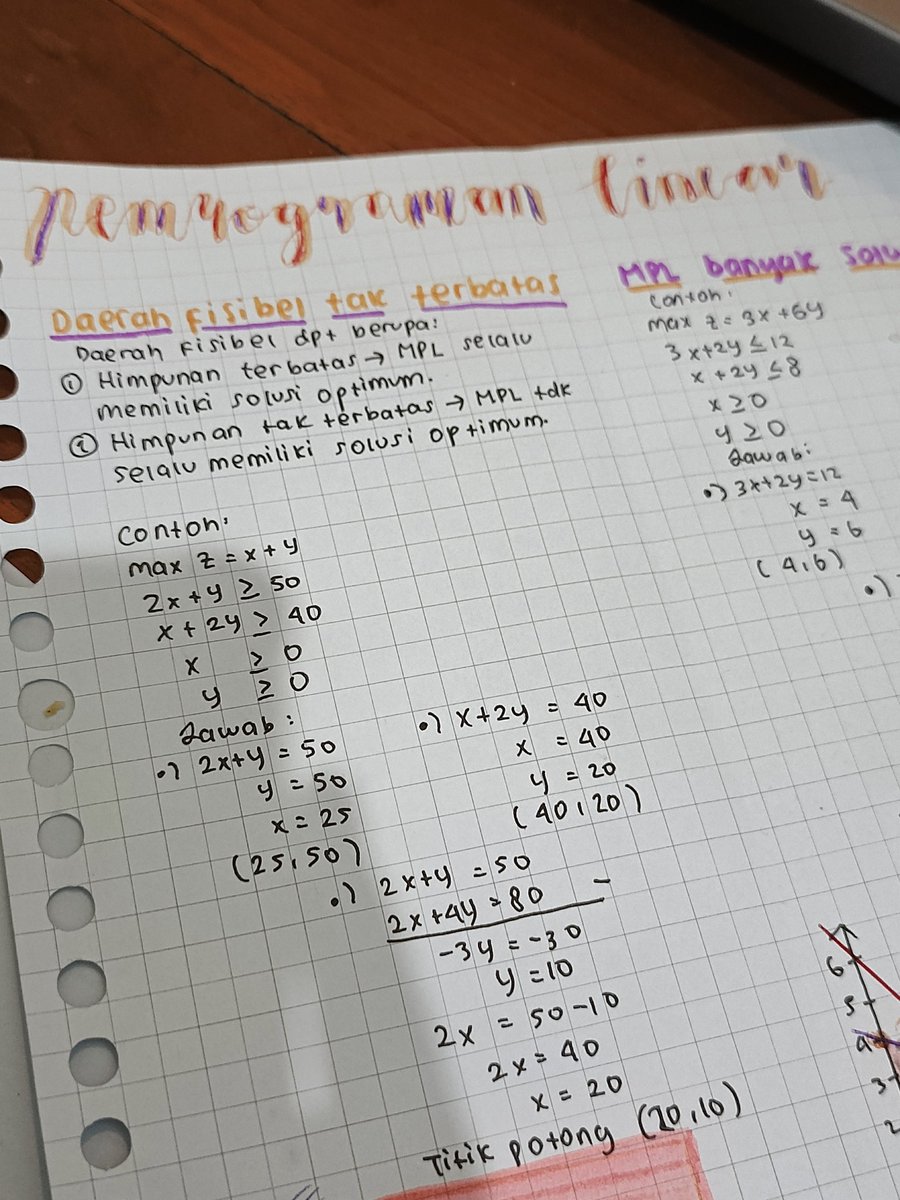 Pemrograman Linear
Daerah Fisibel tak terbatas
Daerah Fisibel dpt berupa:
① Himpunan terbatas → MPL selalu
memiliki solusi optimum.
② Himpunan tak terbatas → MPL tdk
selalu memiliki solusi optimum.
Contoh:
max z = x + y
2x + y ≥ 50
x + 2y ≥ 40
x ≥ 0
y ≥ 0
Jawab:
•) 2x+y = 50
y = 50
x = 25
(25,50)
•) x+2y = 40
x = 40
y = 20
(40,20)
•) 2x+y = 50
2x+4y = 80 -
-3y = -30
y = 10
2x = 50-10
2x = 40
x = 20
Titik potong (20,10)
MPL banyak solu
Contoh:
max z = 3x + 6y
3x+2y ≤ 12
x + 2y ≤ 8
x ≥ 0
y ≥ 0
Jawab:
•) 3x+2y = 12
x = 4
y = 6
(4,6)
•)
6
5
4
3
2